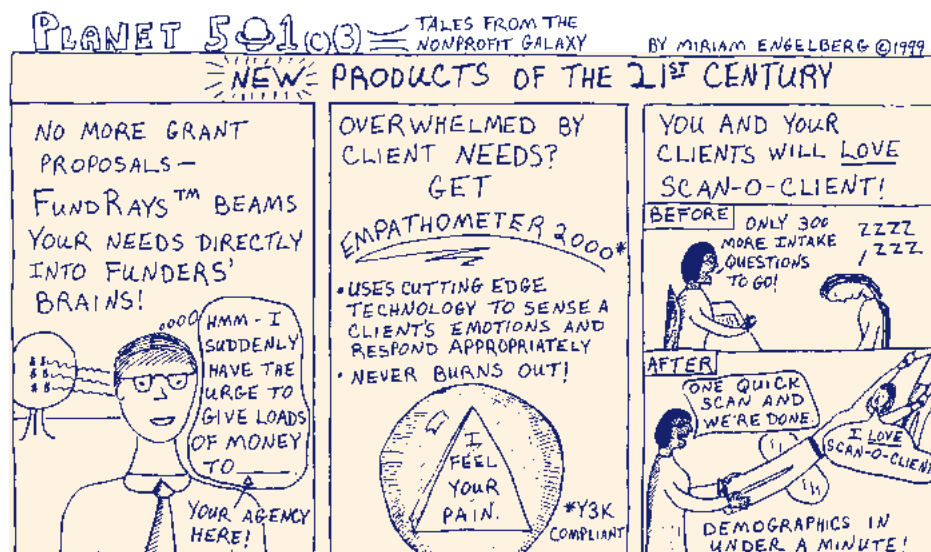 PLANET 501(C)(3)
TALES FROM THE
NONPROFIT GALAXY
BY MIRIAM ENGELBERG ©1999
NEW PRODUCTS OF THE 21ST CENTURY
NO MORE GRANT
PROPOSALS—
FUNDRAYS™ BEAMS
YOUR NEEDS DIRECTLY
INTO FUNDERS'
BRAINS!
$ $
$ $
$ $
HMM - I
SUDDENLY
HAVE THE
URGE TO
GIVE LOADS
OF MONEY
TO____
YOUR AGENCY
HERE!
OVERWHELMED BY
CLIENT NEEDS?
GET
EMPATHOMETER 2000*
• USES CUTTING EDGE
TECHNOLOGY TO SENSE A
CLIENT'S EMOTIONS AND
RESPOND APPROPRIATELY
• NEVER BURNS OUT!
I
FEEL
YOUR
PAIN.
*Y3K
COMPLIANT
YOU AND YOUR
CLIENTS WILL LOVE
SCAN-O-CLIENT!
BEFORE
ONLY 300
MORE INTAKE
QUESTIONS
TO GO!
ZZZZ
ZZZ
AFTER
ONE QUICK
SCAN AND
WE'RE DONE.
I LOVE
SCAN-O-CLIENT
DEMOGRAPHICS IN
UNDER A MINUTE!